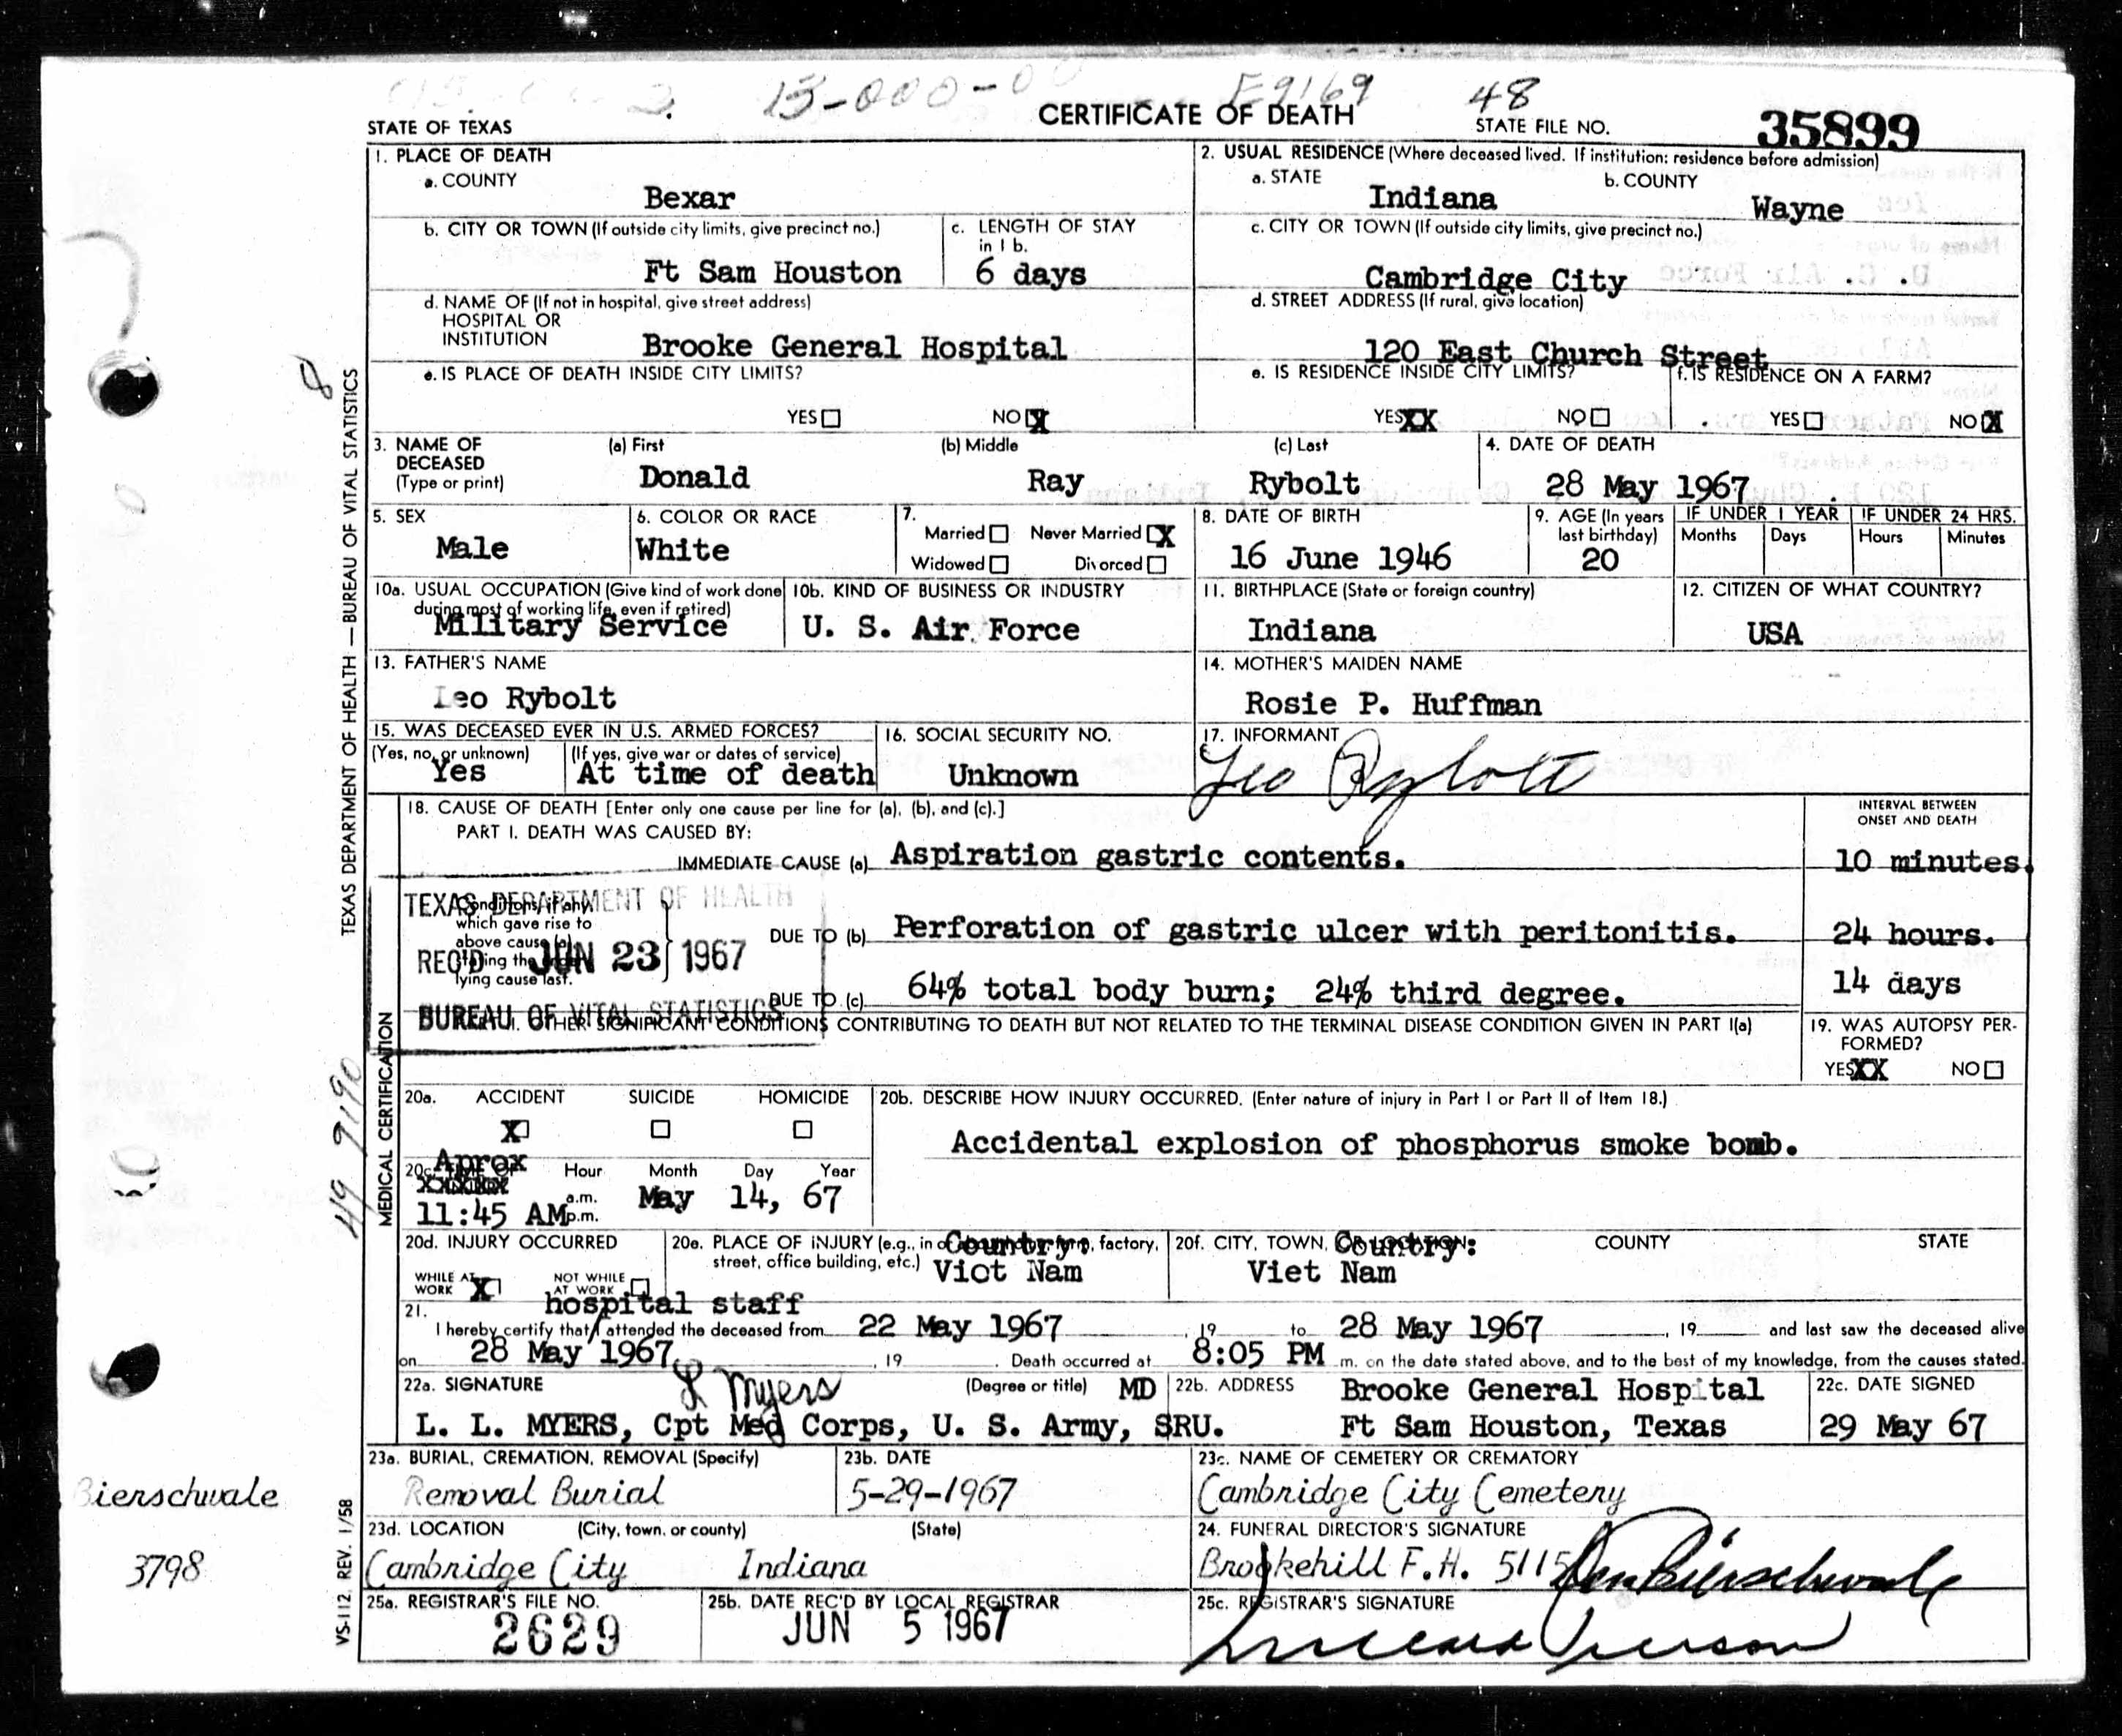 13-000-0
E9169
48
CERTIFICATE OF DEATH
STATE OF TEXAS
STATE FILE NO. 35899
1. PLACE OF DEATH
a. COUNTY
Bexar
2. USUAL RESIDENCE (Where deceased lived. If institution: residence before admission)
a. STATE Indiana b. COUNTY Wayne
b. CITY OR TOWN (If outside city limits, give precinct no.)
Ft Sam Houston
c. LENGTH OF STAY in 1 b.
6 days
c. CITY OR TOWN (If outside city limits, give precinct no.)
Cambridge City
d. NAME OF (If not in hospital, give street address)
HOSPITAL OR
INSTITUTION Brooke General Hospital
d. STREET ADDRESS (If rural, give location)
120 East Church Street
e. IS PLACE OF DEATH INSIDE CITY LIMITS?
YES☐ NO X
e. IS RESIDENCE INSIDE CITY LIMITS?
YES XX NO☐
f. IS RESIDENCE ON A FARM?
YES☐ NO X
3. NAME OF DECEASED (Type or print)
(a) First (b) Middle (c) Last
Donald Ray Rybolt
4. DATE OF DEATH
28 May 1967
5. SEX
Male
6. COLOR OR RACE
White
7.
Married☐ Never Married X
Widowed☐ Divorced☐
8. DATE OF BIRTH
16 June 1946
9. AGE (In years last birthday)
20
IF UNDER 1 YEAR IF UNDER 24 HRS.
Months Days Hours Minutes
10a. USUAL OCCUPATION (Give kind of work done during most of working life, even if retired)
Military Service
10b. KIND OF BUSINESS OR INDUSTRY
U. S. Air Force
11. BIRTHPLACE (State or foreign country)
Indiana
12. CITIZEN OF WHAT COUNTRY?
USA
13. FATHER'S NAME
Leo Rybolt
14. MOTHER'S MAIDEN NAME
Rosie P. Huffman
15. WAS DECEASED EVER IN U.S. ARMED FORCES?
(Yes, no, or unknown) (If yes, give war or dates of service)
Yes At time of death
16. SOCIAL SECURITY NO.
Unknown
17. INFORMANT
Leo Rybolt
18. CAUSE OF DEATH [Enter only one cause per line for (a), (b), and (c).]
PART I. DEATH WAS CAUSED BY:
INTERVAL BETWEEN ONSET AND DEATH
IMMEDIATE CAUSE (a) Aspiration gastric contents. 10 minutes.
Conditions, if any, which gave rise to above cause (a) stating the underlying cause last.
DUE TO (b) Perforation of gastric ulcer with peritonitis. 24 hours.
DUE TO (c) 64% total body burn; 24% third degree. 14 days
TEXAS DEPARTMENT OF HEALTH
REC'D JUN 23 1967
BUREAU OF VITAL STATISTICS
OTHER SIGNIFICANT CONDITIONS CONTRIBUTING TO DEATH BUT NOT RELATED TO THE TERMINAL DISEASE CONDITION GIVEN IN PART I(a)
19. WAS AUTOPSY PERFORMED?
YES XX NO☐
20a. ACCIDENT SUICIDE HOMICIDE
X ☐ ☐
20b. DESCRIBE HOW INJURY OCCURRED. (Enter nature of injury in Part I or Part II of Item 18.)
Accidental explosion of phosphorus smoke bomb.
20c. Aprox
Hour Month Day Year
11:45 AM a.m. p.m. May 14, 67
20d. INJURY OCCURRED
WHILE AT WORK X NOT WHILE AT WORK ☐
20e. PLACE OF INJURY (e.g., in or about home, farm, factory, street, office building, etc.)
Country: Viet Nam
20f. CITY, TOWN, OR LOCATION COUNTY STATE
Country:
Viet Nam
21. hospital staff
I hereby certify that / attended the deceased from 22 May 1967, 19 to 28 May 1967, 19 and last saw the deceased alive
on 28 May 1967, 19 . Death occurred at 8:05 PM m. on the date stated above, and to the best of my knowledge, from the causes stated.
22a. SIGNATURE L Myers (Degree or title) MD
L. L. MYERS, Cpt Med Corps, U. S. Army, SRU.
22b. ADDRESS Brooke General Hospital
Ft Sam Houston, Texas
22c. DATE SIGNED
29 May 67
23a. BURIAL, CREMATION, REMOVAL (Specify)
Removal Burial
23b. DATE
5-29-1967
23c. NAME OF CEMETERY OR CREMATORY
Cambridge City Cemetery
23d. LOCATION (City, town, or county) (State)
Cambridge City Indiana
24. FUNERAL DIRECTOR'S SIGNATURE
Brookehill F.H. 5115 Bierschwale
25a. REGISTRAR'S FILE NO.
2629
25b. DATE REC'D BY LOCAL REGISTRAR
JUN 5 1967
25c. REGISTRAR'S SIGNATURE
TEXAS DEPARTMENT OF HEALTH — BUREAU OF VITAL STATISTICS
MEDICAL CERTIFICATION
VS-112 REV. 1/58
8
49 9190
Bierschwale
3798